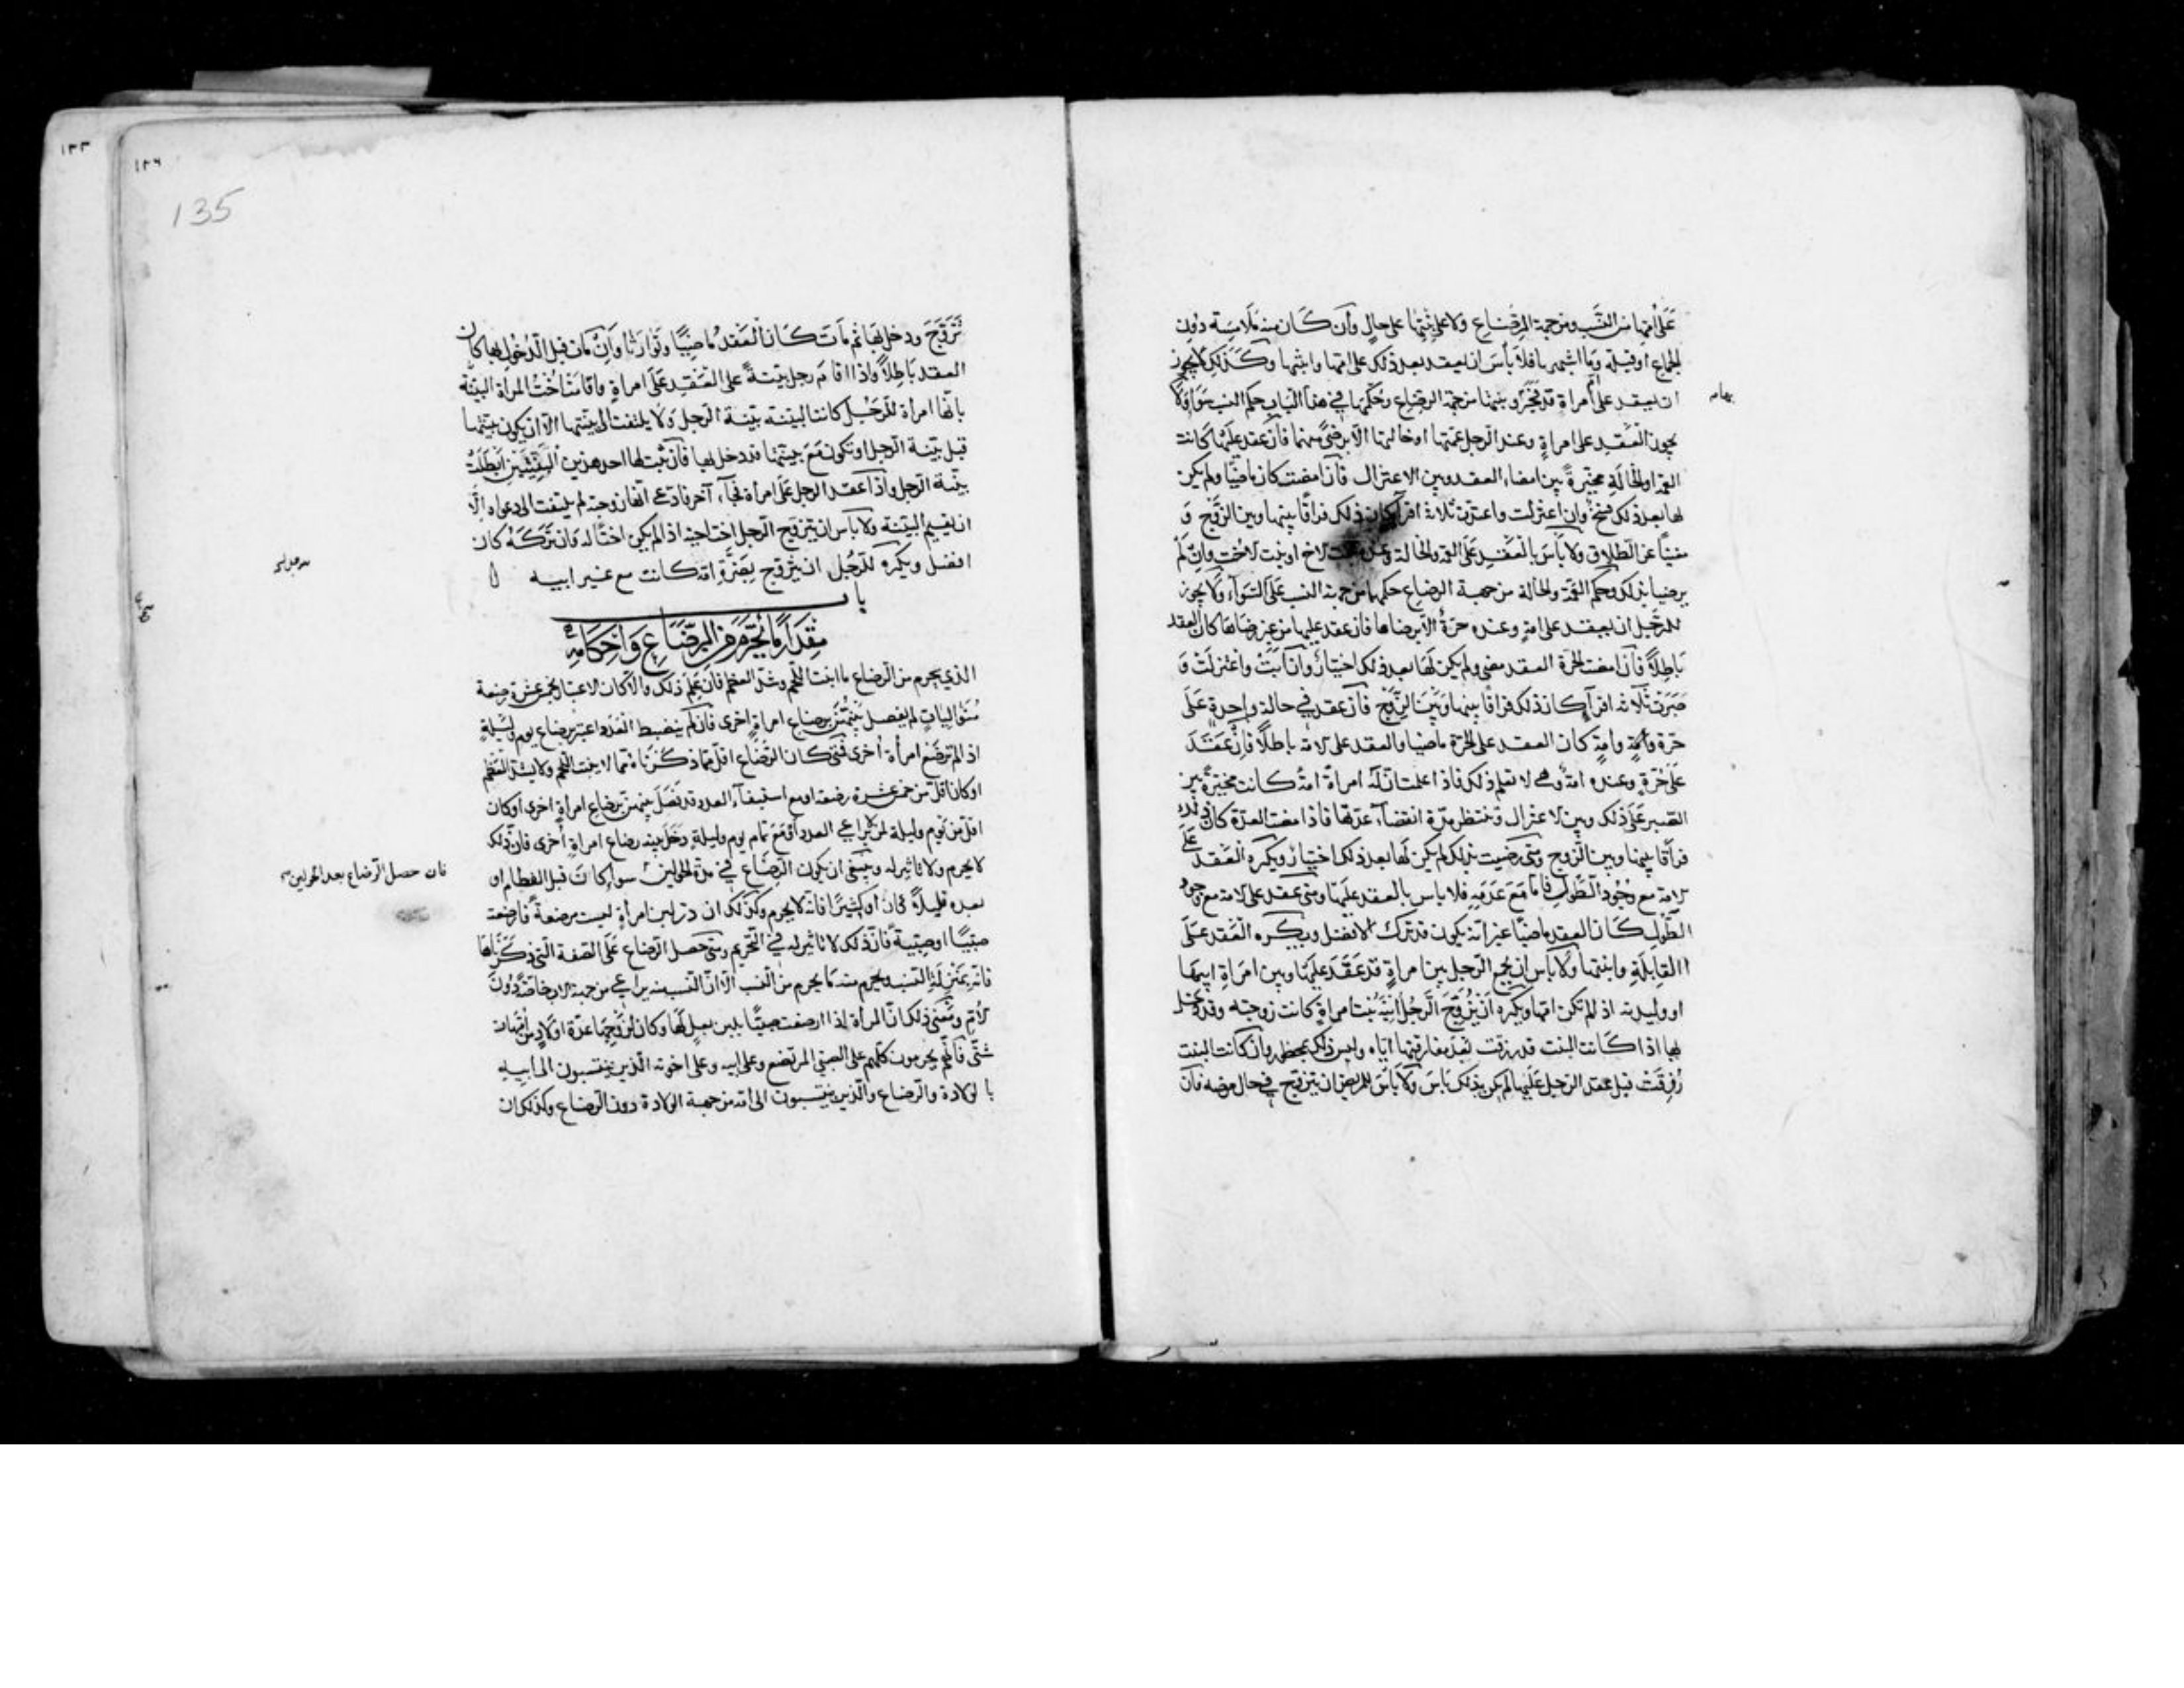 على امها من النسب ومن جهة الرضاع ولا على بنتها على حال وان كان منه ملامسة دون
الجماع او قبلة وما اشبههما فلا بأس ان يعقد بعد ذلك على امها وابنتها وكذلك لا يجوز
ان يعقد على امراة قد بينهما من جهة الرضاع وحكمهما في هذا الباب حكم النسب سواء ولا
بهامه
يجوز العقد على امراة وعند الرجل عمتها او خالتها الا برضى منهما فان عقد عليها كانت
العمة او الخالة مخيرة بين امضاء العقد وبين الاعتزال فان امضت كان ماضيا ولم يكن
لها بعد ذلك فسخ وان اعتزلت واعتدت ثلاثة اقراء كان ذلك فراقا بينها وبين الزوج و
مغنيا عن الطلاق ولا بأس بالعقد على العمة والخالة وعنده بنت لاخ او بنت لاخت وان لم
يرضيا بذلك وحكم العمة والخالة من جهة الرضاع حكمهما من جهة النسب على السواء ولا يجوز
للرجل ان يعقد على امة وعنده حرة الا برضاها فان عقد عليها من غير رضاها كان العقد
باطلا فان امضت الحرة العقد مضى ولم يكن لها بعد ذلك اختيار وان ابت واعتزلت و
صبرت ثلاثة اقراء كان ذلك فراقا بينها وبين الزوج فان عقد في حالة واحدة على
حرة وامة كان العقد على الحرة ماضيا والعقد على الامة باطلا فان عقد
على حرة وعنده امة وهي لا تعلم ذلك فاذا علمت ان له امراة امة كانت مخيرة بين
الصبر على ذلك وبين الاعتزال وتنتظر مدة انقضاء عدتها فاذا مضت العدة كان ذلك
فراقا بينها وبين الزوج ومتى رضيت بذلك لم يكن لها بعد ذلك اختيار ويكره العقد على
الامة مع وجود الطول فاما مع عدمه فلا باس بالعقد عليها ومتى عقد على الامة مع وجود
الطول كان العقد ماضيا غير انه يكون قد ترك الافضل ويكره العقد على
القابلة وابنتها ولا بأس ان يجمع الرجل بين امراة قد عقد عليها وبين امراة ابيها
او وليدته اذا لم تكن امها ويكره ان يزوج الرجل ابنه بنت امراة كانت زوجته وقد دخل
بها اذا كانت البنت قد رزقت بعد مفارقتها اياه وليس ذلك بمحظور وان كانت البنت
رزقت قبل عقد الرجل عليها لم يكن بذلك بأس ولا بأس للمريض ان يتزوج في حال مرضه فان
١٣٣
١٣٦
135
تزوج ودخل بها ثم مات كان العقد ماضيا وتوارثا وان مات قبل الدخول بها كان
العقد باطلا واذا اقام رجل بينة على العقد على امراة واقامت اخت المراة البينة
بانها امراة الرجل كانت البينة بينة الرجل ولا يلتفت الى بينتها الا ان يكون بينتها
قبل بينة الرجل او تكون مع بينتها قد دخل بها فان ثبت لها احد هذين ابطلت
بينة الرجل واذا عقد الرجل على امراة فجاء آخر فادعى انها زوجته لم يلتفت الى دعواه الا
ان يقيم البينة ولا باس ان يتزوج الرجل اخت اخيه اذا لم يكن اختا له فان تركه كان
افضل ويكره للرجل ان يتزوج بضرة امه كانت مع غير ابيه
باب
مقدار ما يحرم من الرضاع واحكامه
الذي يحرم من الرضاع ما انبت اللحم وشد العظم فان علم ذلك والا كان الاعتبار بخمس عشرة رضعة
متواليات لم يفصل بينهن برضاع امراة اخرى فان لم ينضبط العدد اعتبر برضاع يوم وليلة
اذا لم ترضع امرأة اخرى فمتى كان الرضاع اقل مما ذكرناه مما لا ينبت اللحم ولا يشد العظم
او كان اقل من خمس عشرة رضعة او مع استيفاء العدد قد فصل بينهن برضاع امراة اخرى او كان
اقل من يوم وليلة لمن لا يراعي العدد او مع تمام يوم وليلة دخل بينه رضاع امراة اخرى فان ذلك
لا يحرم ولا تاثير له وينبغي ان يكون الرضاع في مدة الحولين سواء كان قبل الفطام او
فان حصل الرضاع بعد الحولين
بعده قليلا كان او كثيرا فانه لا يحرم وكذلك ان در لبن امرأة ليست مرضعة فارضعت
صبيا او صبية فان ذلك لا تاثير له في التحريم ومتى حصل الرضاع على الصفة التي ذكرناها
فانه بمنزلة النسب ويحرم منه ما يحرم من النسب الا ان النسب منه يراعي من جهة الاب خاصة دون
الام ومعنى ذلك ان المرأة اذا ارضعت صبيا بلبن بعل لها وكان لزوجها عدة اولاد من امهات
شتى فانهم يحرمون كلهم على الصبي المرتضع وعلى ابيه وعلى اخوته الذين ينتسبون الى ابيه
بالولادة والرضاع والذين ينتسبون الى امه من جهة الولادة دون الرضاع وكذلك ان